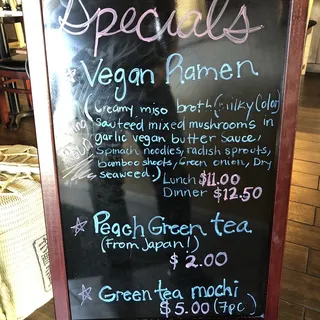 Specials
Vegan Ramen
(Creamy miso broth (milky color)
sauteed mixed mushrooms in
garlic vegan butter sauce,
Spinach noodles, radish sprouts,
bamboo shoots, Green onion, Dry
seaweed.) Lunch $11.00
Dinner $12.50
Peach Green tea
(From Japan!)
$2.00
Green tea mochi
$5.00 (7pc)